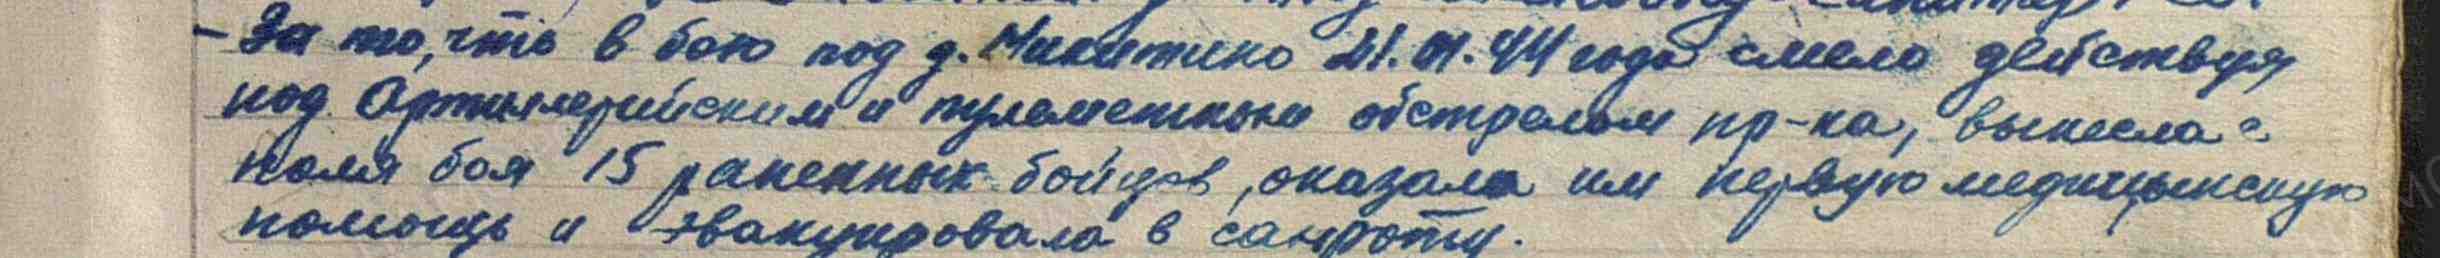 - За то, что в бою под д. Микитино 21.01.44 года смело действуя
под Артиллерийским и пулеметным обстрелом пр-ка, вынесла с
поля боя 15 раненных бойцов, оказала им первую медицынскую
помощь и эвакуировала в санроту.